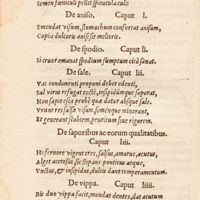 Semen fœniculi pellit spiracula culi:
De aniso. Caput l.
Emendat visum, stomachum confortat anisum,
Copia dulcoris anisi sit melioris.
De spodio. Caput li.
Si cruor emanat spodium sumptum citò sanat.
De sale. Caput lii.
Vas condimenti proponi debet edenti,
Sal virus refugat rectè, insipidúmque saporat,
Non sapit esca probè quæ datur absque sale.
Vrunt res salsæ visum, seménque minorant,
Et generant scabiem, pruritum siue rigorem.
De saporibus ac eorum qualitatibus.
Caput liii.
Hi feruore vigent tres, salsus, amarus, acutus,
Alget acetosus sic stipans ponticus atque,
Vnctus, et insipidus, dulcis dant temperamentum.
De vippa. Caput liiii.
Bis duo vippa facit, mundat dentes, dat acutum